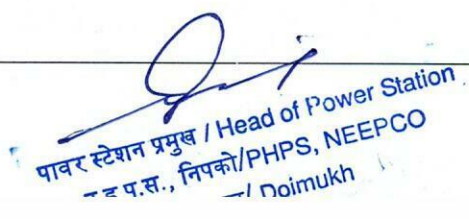 पावर स्टेशन प्रमुख / Head of Power Station
प.स., निपको/PHPS, NEEPCO
/ Doimukh